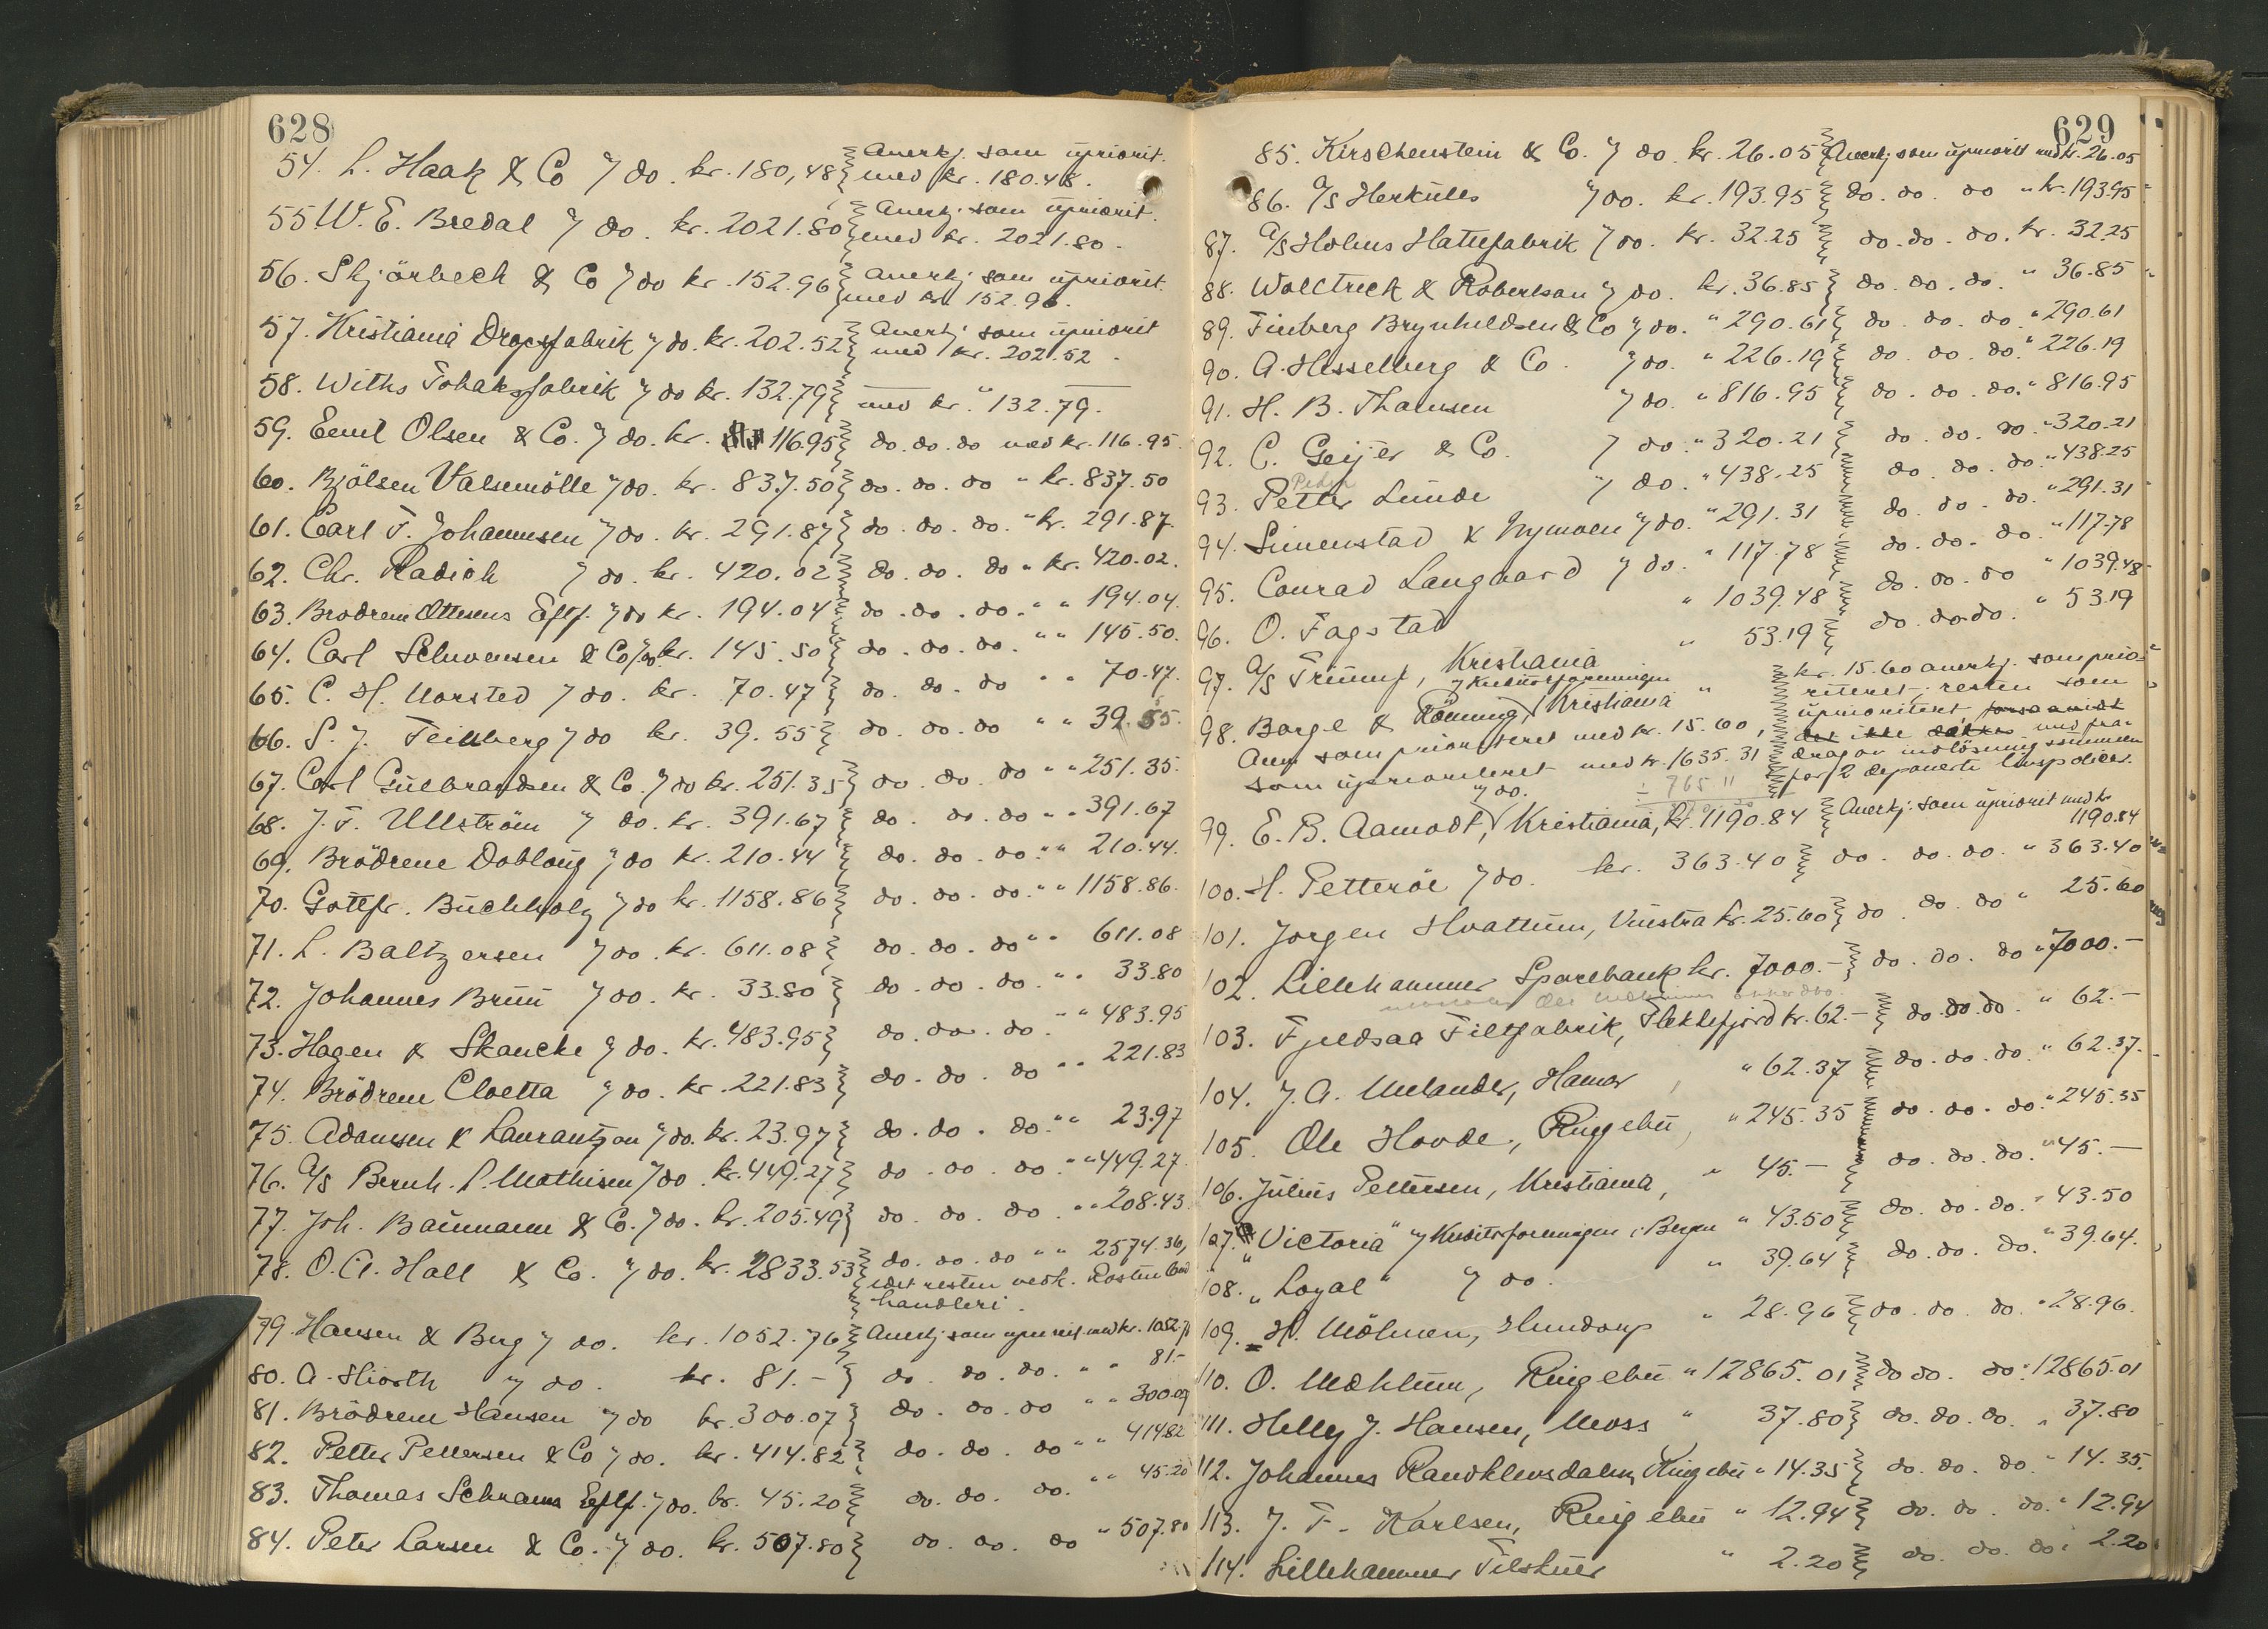 628
54. L. Haak & Co ɔ: do. kr. 180,48 Anerkj. som upriorit.
med kr. 180.48.
55 W. E. Bredal ɔ: do. kr. 2021.80 Anerkj. som upriorit.
med kr. 2021.80.
56. Skjörbech & Co ɔ: do kr. 152.96 Anerkj. som upriorit.
med kr. 152.96.
57. Kristiania Dropsfabrik ɔ: do. kr. 202.52 Anerkj. som upriorit
med kr. 202.52.
58. Withs Tobaksfabrik ɔ: do kr. 132.79 — " —
med kr. 132.79.
59. Emil Olsen & Co. ɔ: do. kr. 116.95 do. do. do med kr. 116.95.
60. Bjölsen Valsemölle ɔ: do. kr. 837.50 do. do. do " kr. 837.50
61. Carl F. Johannesen ɔ: do. kr. 291.87 do. do. do. " kr. 291.87.
62. Chr. Radich ɔ: do. kr. 420.02 do. do. do " kr. 420.02.
63. Brödrene Ottesens Eftf. ɔ: do kr. 194.04 do. do. do. " " 194.04.
64. Carl Schwensen & Co ɔ: do. kr. 145.50 do. do. do. " " 145.50.
65. C. H. Morsted ɔ: do. kr. 70.47 do. do. do " " 70.47.
66. S. J. Feinberg ɔ: do kr. 39.55 do. do. do " " 39.55.
67. Carl Gulbrandsen & Co. ɔ: do kr. 251.35 do. do. do " " 251.35.
68. J. F. Ullström ɔ: do. kr. 391.67 do. do. do " " 391.67
69. Brödrene Dobloug ɔ: do kr. 210.44 do. do. do. " " 210.44.
70. Gottfr. Buchholz ɔ: do kr. 1158.86 do. do. do. " " 1158.86.
71. L. Baltzersen ɔ: do. kr. 611.08 do. do. do " " 611.08
72. Johannes Bruu ɔ: do. kr. 33.80 do. do. do. " " 33.80
73. Hagen & Skancke ɔ: do. kr. 483.95 do. do. do. " " 483.95
74. Brödrene Cloetta ɔ: do. kr. 221.83 do. do. do " " 221.83
75. Adamsen & Laurantzon ɔ: do. kr. 23.97 do. do. do. " " 23.97
76. A/S Bernh. L. Mathisen ɔ: do. kr. 449.27 do. do. do. " " 449.27.
77. Joh. Baumann & Co. ɔ: do. kr. 205.49 do. do. do. " " 208.43
78. O. A. Hall & Co. ɔ: do. kr. 2833.53 do. do. do " " 2574.36,
idet resten vedk. Rosten land
handleri.
79. Hansen & Berg ɔ: do. kr. 1052.76 Anerkj. som upriorit med kr. 1052.76
80. A. Hiorth ɔ: do. kr. 81.– do. do. do. " " 81.–
81. Brödrene Hansen ɔ: do kr. 300.07 do. do. do " " 300.07
82. Petter Pettersen & Co ɔ: do. kr. 414.82 do. do. do " " 414.82
83. Thomas Schrams Eftf. ɔ: do. kr. 45.20 do. do. do. " " 45.20
84. Peter Larsen & Co. ɔ: do. kr. 507.80 do. do. do " 507.80
629
85. Kirschenstein & Co. ɔ: do. kr. 26.05 Anerkj. som upriorit med kr. 26.05
86. A/S Herkules ɔ: do. kr. 193.95 do. do. do " kr. 193.95
87. A/S Holms Hattefabrik ɔ: do. kr. 32.25 do. do. do. kr. 32.25
88. Woldtreck & Robertson ɔ: do. kr. 36.85 do. do. do. " 36.85
89. Finberg Brynhildsen & Co ɔ: do. " 290.61 do. do. do. " 290.61
90. A. Hesselberg & Co. ɔ: do. " 226.19 do. do. do. " 226.19
91. H. B. Thamsen ɔ: do. " 816.95 do. do. do. " 816.95
92. C. Geijer & Co. ɔ: do. " 320.21 do. do. do. " 320.21
93. Petter Lunde ɔ: do. " 438.25 do. do. do. " 438.25
94. Simenstad & Nymoen ɔ: do. " 291.31 do. do. do. " 291.31
95. Conrad Langaard ɔ: do. " 117.78 do. do. do. " 117.78
96. O. Fagstad " 1039.48 do. do. do " 1039.48
97. A/S Triumf, Kristiania " 53.19 do. do. do. " 53.19
ɔ: Kreditorforeningen
98. Borge & Rönning, Kristiania " kr. 15.60 anerkj. som prio-
riteret, resten som
Anm som prioriteret med kr. 15.60, uprioritert, med fra-
som uprioriteret med kr. 1635.31 drag av indlösningssummen
÷ 765 " for 2 deponerte livspoliser.
ɔ: do.
99. E. B. Aamodt, Kristiania, kr. 1190.84 Anerkj. som upriorit med kr.
1190.84
100. H. Petteröe ɔ: do. kr. 363.40 do. do. do. " 363.40
101. Jorgen Hvattum, Vinstra kr. 25.60 do. do. do " 25.60
102. Lillehammer Sparebank kr. 7000.– do. do. do " 7000.–
103. Fjeldsaa Filtfabrik, Flekkefjord kr. 62.– do. do. do. " 62.–
104. J. A. Melander, Hamar, " 62.37 do. do. do. " 62.37.
105. Ole Hovde, Ringebu, " 245.35 do. do. do. " 245.35
106. Julius Pettersen, Kristiania, " 45.– do. do. do. " 45.–
107. "Victoria" ɔ: Kreditorforeningen i Bergen " 43.50 do. do. do. " 43.50
108. "Loyal" ɔ: do. " 39.64 do. do. do. " 39.64.
109. H. Mölmen, Hundorp " 28.96 do. do. do. " 28.96.
110. O. Mæhlum, Ringebu " 12865.01 do do. do. " 12865.01
111. Helly J. Hansen, Moss " 37.80 do. do. do. " 37.80
112. Johannes Randklevsdalen, Ringebu " 14.35 do. do. do. " 14.35.
113. J. F. Karlsen, Ringebu " 12.94 do. do. do. " 12.94
114. Lillehammer Tilskuer " 2.20 do. do. do. " 2.20